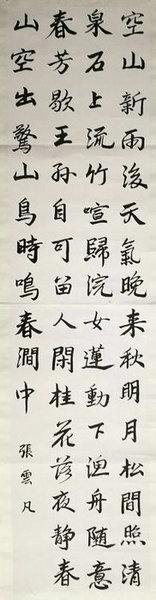 空山新雨後天氣晚来秋明月松間照清
泉石上流竹喧歸浣女蓮動下渔舟随意
春芳歇王孫自可留人閑桂花落夜静春
山空出驚山鳥時鳴春澗中
張雲凡